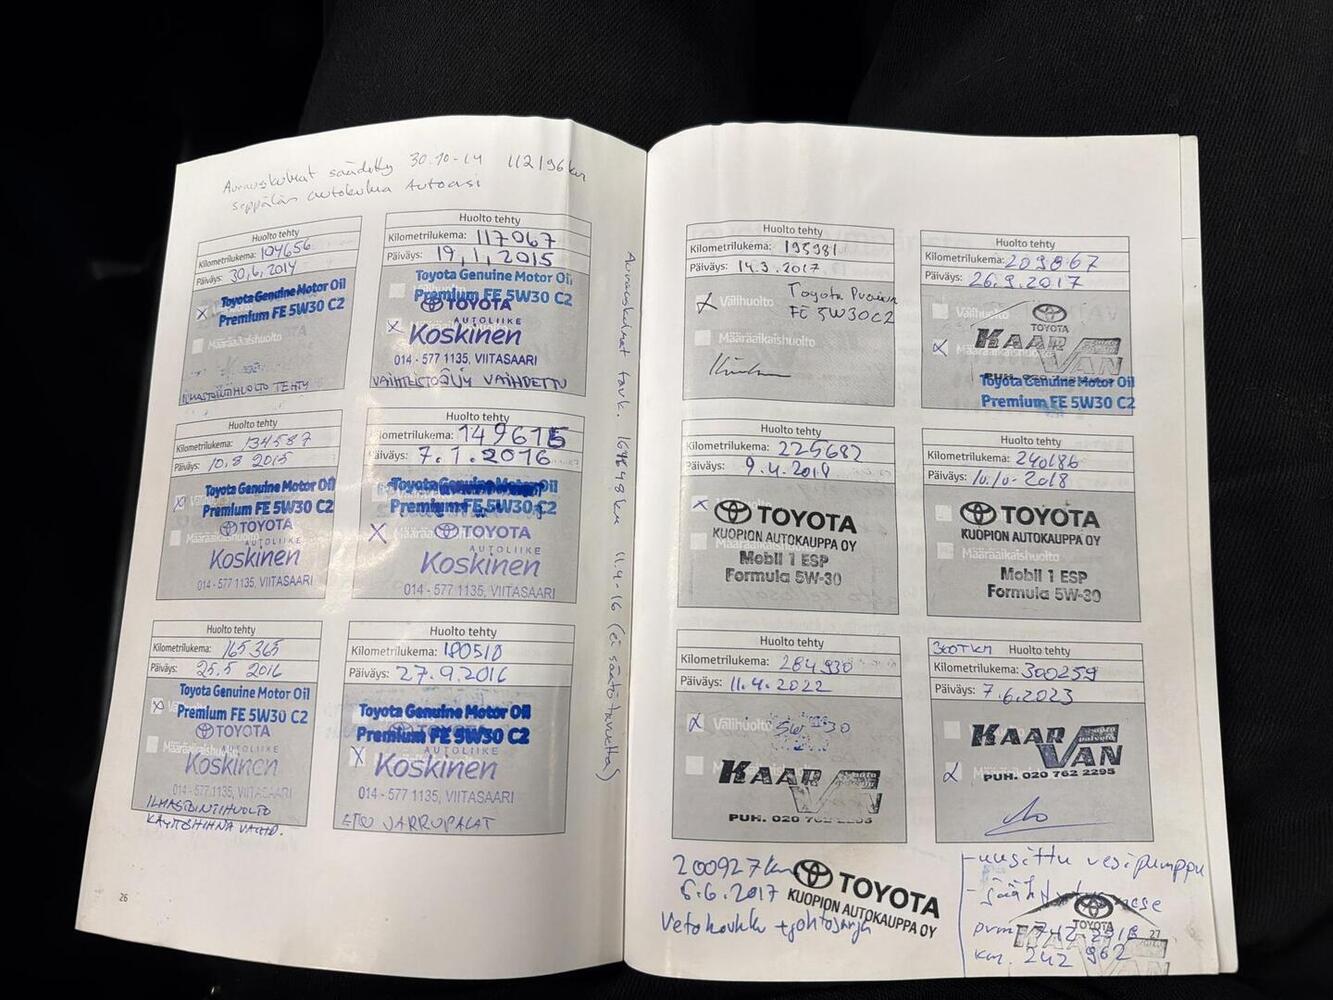 Aurauskulmat säädetty 30.10-14 112196km
Seppälän autokulma Autoasi
Huolto tehty
Kilometrilukema: 104656
Päiväys: 30,6,2014
Toyota Genuine Motor Oil
Premium FE 5W30 C2
Määräaikaishuolto
ILMASTOINTIHUOLTO TEHTY
Huolto tehty
Kilometrilukema: 117067
Päiväys: 19,1,2015
Toyota Genuine Motor Oil
Premium FE 5W30 C2
TOYOTA
AUTOLIIKE
Koskinen
014 - 577 1135, VIITASAARI
VAIHTEISTOÖLJY VAIHDETTU
Huolto tehty
Kilometrilukema: 134587
Päiväys: 10.8 2015
Toyota Genuine Motor Oil
Premium FE 5W30 C2
TOYOTA
AUTOLIIKE
Koskinen
014 - 577 1135, VIITASAARI
Huolto tehty
Kilometrilukema: 149615
Päiväys: 7.1.2016
Toyota Genuine Motor Oil
Premium FE 5W30 C2
TOYOTA
AUTOLIIKE
Koskinen
014 - 577 1135, VIITASAARI
Huolto tehty
Kilometrilukema: 165365
Päiväys: 25.5 2016
Toyota Genuine Motor Oil
Premium FE 5W30 C2
TOYOTA
AUTOLIIKE
Koskinen
014 - 577 1135, VIITASAARI
ILMASTOINTIHUOLTO
KÄYTTÖHIHNA VAIHD.
Huolto tehty
Kilometrilukema: 180518
Päiväys: 27.9.2016
Toyota Genuine Motor Oil
Premium FE 5W30 C2
AUTOLIIKE
Koskinen
014 - 577 1135, VIITASAARI
ETU JARRUPALAT
26
Aurauskulmat tark. 11.4-16 (ei säätötarvetta)
Huolto tehty
Kilometrilukema: 195981
Päiväys: 14.3.2017
Välihuolto
Toyota Premium
FE 5W30C2
Määräaikaishuolto
Huolto tehty
Kilometrilukema: 209867
Päiväys: 26.9.2017
TOYOTA
KAAR
VAN
Toyota Genuine Motor Oil
Premium FE 5W30 C2
Huolto tehty
Kilometrilukema: 225682
Päiväys: 9.4.2018
TOYOTA
KUOPION AUTOKAUPPA OY
Mobil 1 ESP
Formula 5W-30
Huolto tehty
Kilometrilukema: 240686
Päiväys: 10.10-2018
TOYOTA
KUOPION AUTOKAUPPA OY
Määräaikaishuolto
Mobil 1 ESP
Formula 5W-30
Huolto tehty
Kilometrilukema: 284930
Päiväys: 11.4.2022
Välihuolto 5W 30
KAAR
VAN
PUH. 020 762 2295
300TKM Huolto tehty
Kilometrilukema: 300259
Päiväys: 7.6.2023
KAAR
VAN
PUH. 020 762 2295
200927km
6.6.2017
Vetokoukku + johtosarja
TOYOTA
KUOPION AUTOKAUPPA OY
- uusittu vesipumppu
- jäähdytysneste
TOYOTA
KAAR
VAN
km. 242 962
27